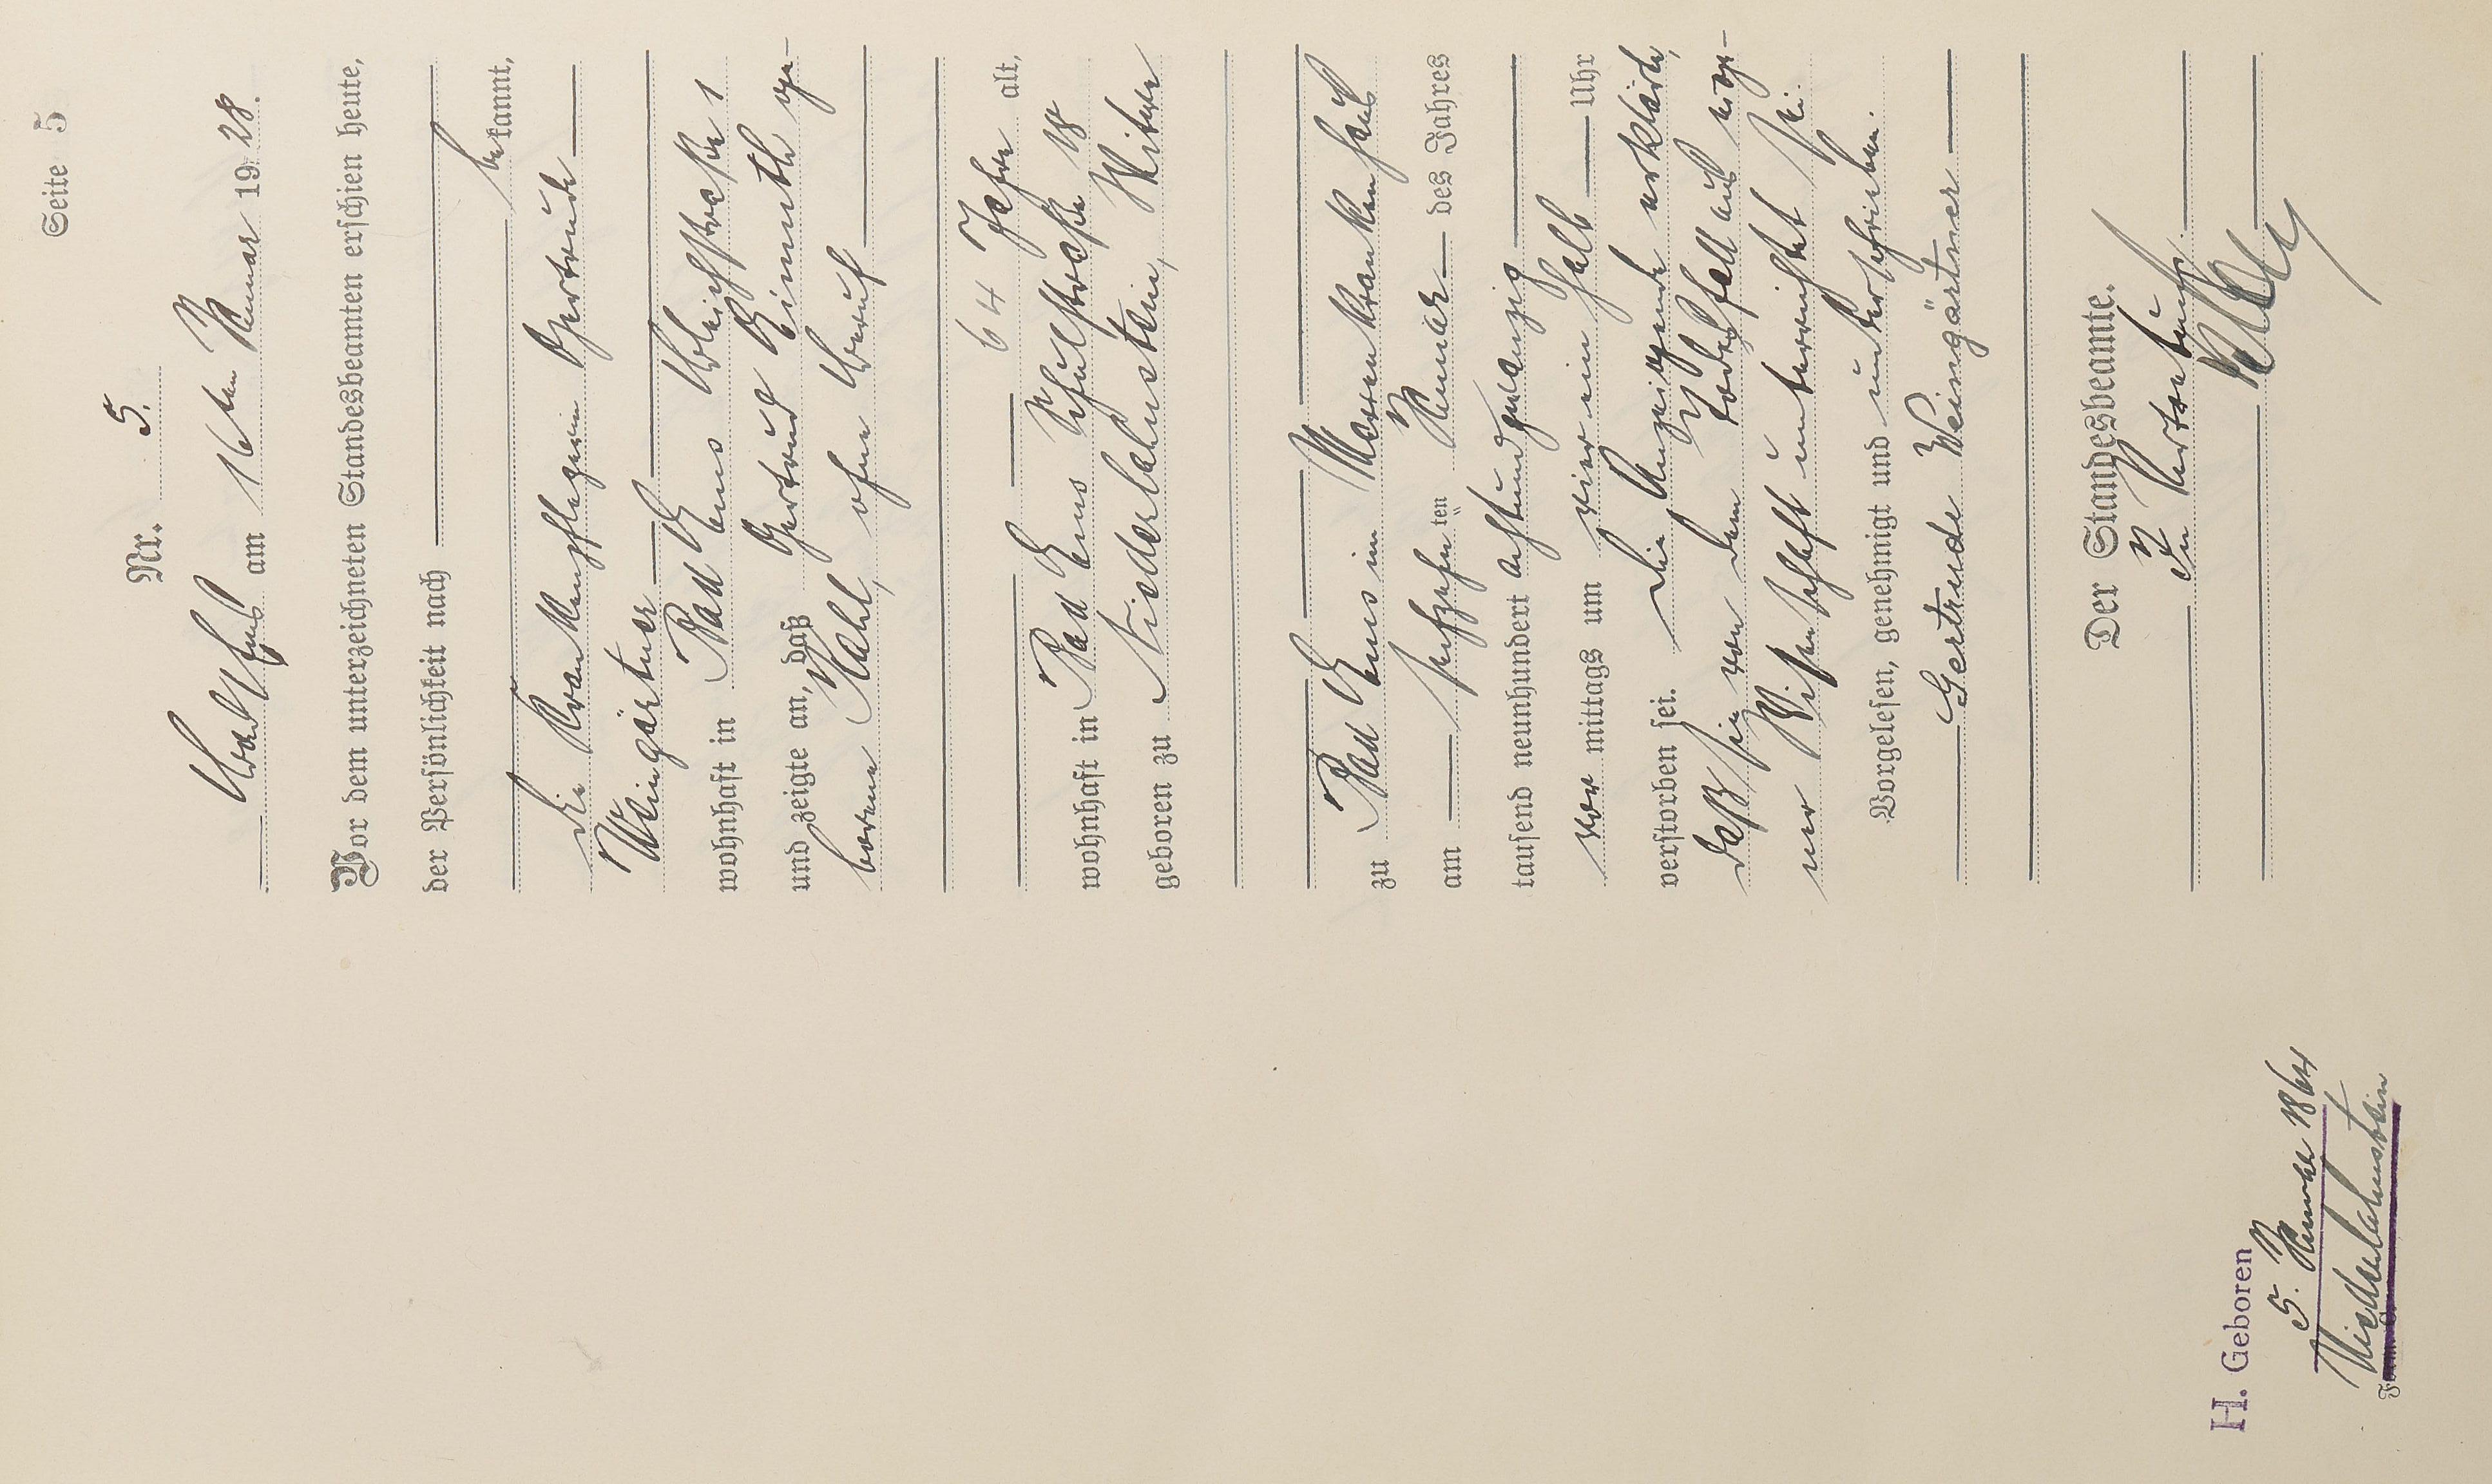 Seite 5
Nr. 5.
Bad Ems am 16ten Januar 1928.
Vor dem unterzeichneten Standesbeamten erschien heute,
der Persönlichkeit nach
bekannt,
die Krankenpflegerin Gertrude
Weingärtner
wohnhaft in Bad Ems Bleichstraße 1
und zeigte an, daß Gertrud Einmuth ge-
borene Kahl, ohne Beruf
64 Jahre alt,
wohnhaft in Bad Ems Schulstraße 18
geboren zu Niederlahnstein, Witwe
zu Bad Ems im Marienkrankenhaus
am sechszehnten Januar des Jahres
tausend neunhundert achtundzwanzig
vor mittags um vier ein halb Uhr
verstorben sei. Die Anzeigende erklärte,
daß sie von dem Todesfall aus eige-
ner Wissenschaft unterrichtet sei.
Vorgelesen, genehmigt und unterschrieben.
Gertrude Weingärtner
Der Standesbeamte.
In Vertretung.
H. Geboren
5. Januar 1864
Niederlahnstein